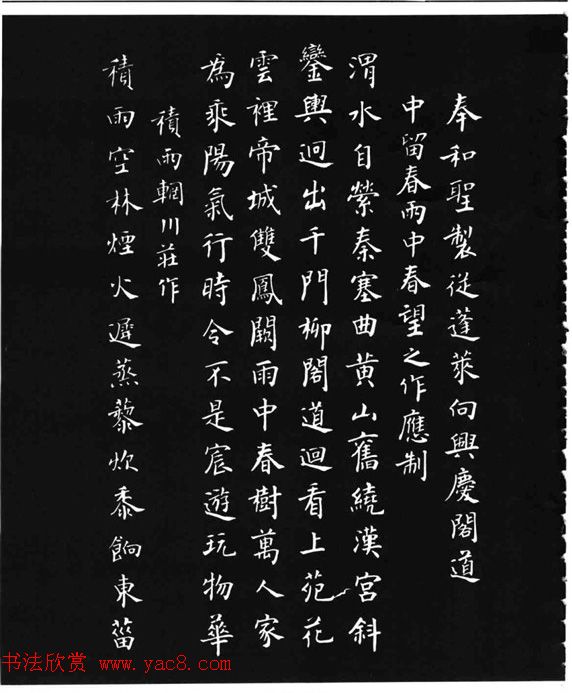 奉和聖製從蓬萊向興慶閣道
中留春雨中春望之作應制
渭水自縈秦塞曲黄山舊繞漢宮斜
鑾輿迥出千門柳閣道迴看上苑花
雲裡帝城雙鳳闕雨中春樹萬人家
為乘陽氣行時令不是宸遊玩物華
積雨輞川莊作
積雨空林煙火遲蒸藜炊黍餉東菑
书法欣赏 www.yac8.com